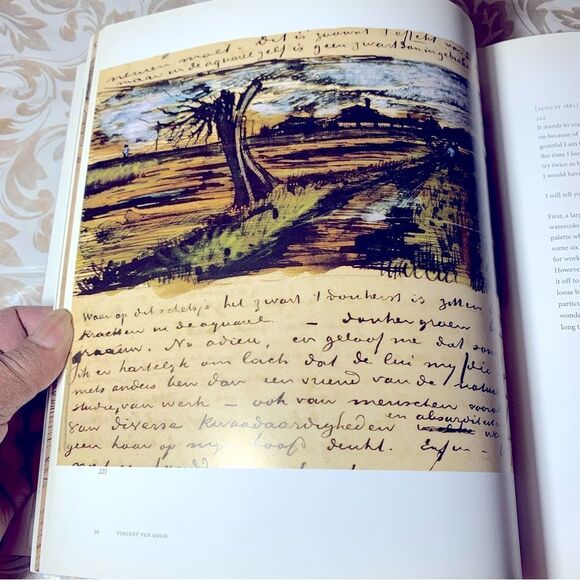 moet. Dit is zoowat t effect van
maar in de aquarel zelf is geen zwart dan in gebroke
Waar op dit schetsje het zwart 't donkerst is zitten
krachten in de aquarel – donker groen
graauw. Nu adieu, en geloof me dat som
ik er hartelijk om lach dat de lui mij (die
niets anders ben dan een vriend van de natuu
studie, van werk – ook van menschen vooral
van diverse kwaadaardigheden en absurditeiten wa
geen haar op mijn hoofd denkt. Enfin –
221
VINCENT VAN GOGH
222
It stands to rea
on because of
grateful I am
the time I loo
try twice as
I would have
I will tell yo
First, a larg
watercolo
palette wh
some six
for work
However
it off to
loose b
particu
wonde
long t